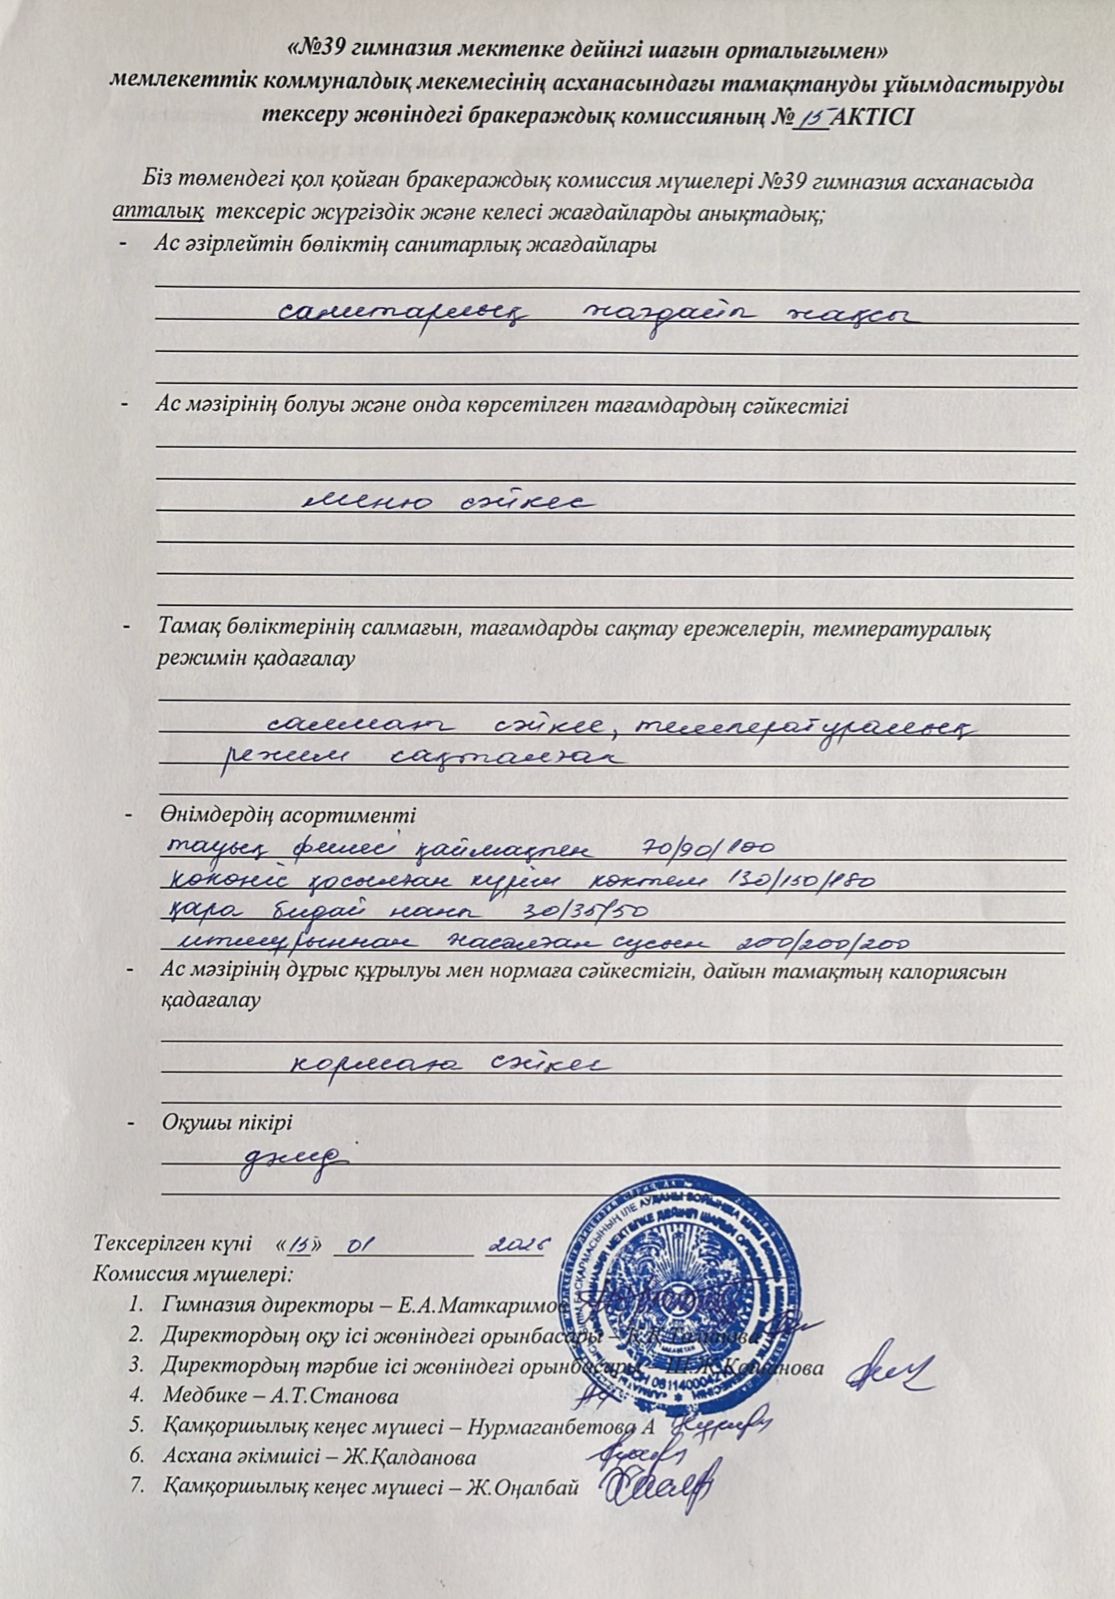 «№39 гимназия мектепке дейінгі шағын орталығымен»
мемлекеттік коммуналдық мекемесінің асханасындағы тамақтануды ұйымдастыруды
тексеру жөніндегі бракераждық комиссияның № 15 АКТІСІ
Біз төмендегі қол қойған бракераждық комиссия мүшелері №39 гимназия асханасыда
апталық тексеріс жүргіздік және келесі жағдайларды анықтадық;
- Ас әзірлейтін бөліктің санитарлық жағдайлары
санитарлық жағдайы жақсы
- Ас мәзірінің болуы және онда көрсетілген тағамдардың сәйкестігі
меню сәйкес
- Тамақ бөліктерінің салмағын, тағамдарды сақтау ережелерін, температуралық
режимін қадағалау
салмағы сәйкес, температуралық
режим сақталған
- Өнімдердің асортименті
тауық филесі қаймақпен 70/90/100
көкөніс қосылған күріш көктем 130/150/180
қара бидай наны 30/35/50
итмұрыннан жасалған сусын 200/200/200
- Ас мәзірінің дұрыс құрылуы мен нормаға сәйкестігін, дайын тамақтың калориясын
қадағалау
нормаға сәйкес
- Оқушы пікірі
дәмді
Тексерілген күні «15» 01 2026
Комиссия мүшелері:
1. Гимназия директоры – Е.А.Маткаримов
2. Директордың оқу ісі жөніндегі орынбасары –
3. Директордың тәрбие ісі жөніндегі орынбасары –
4. Медбике – А.Т.Станова
5. Қамқоршылық кеңес мүшесі – Нурмаганбетова А
6. Асхана әкімшісі – Ж.Қалданова
7. Қамқоршылық кеңес мүшесі – Ж.Оңалбай